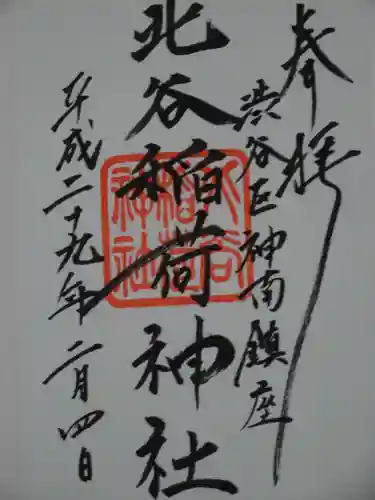 奉拝
渋谷区神南鎮座
北谷稲荷神社
平成二十九年二月四日
北谷
稲荷
神社